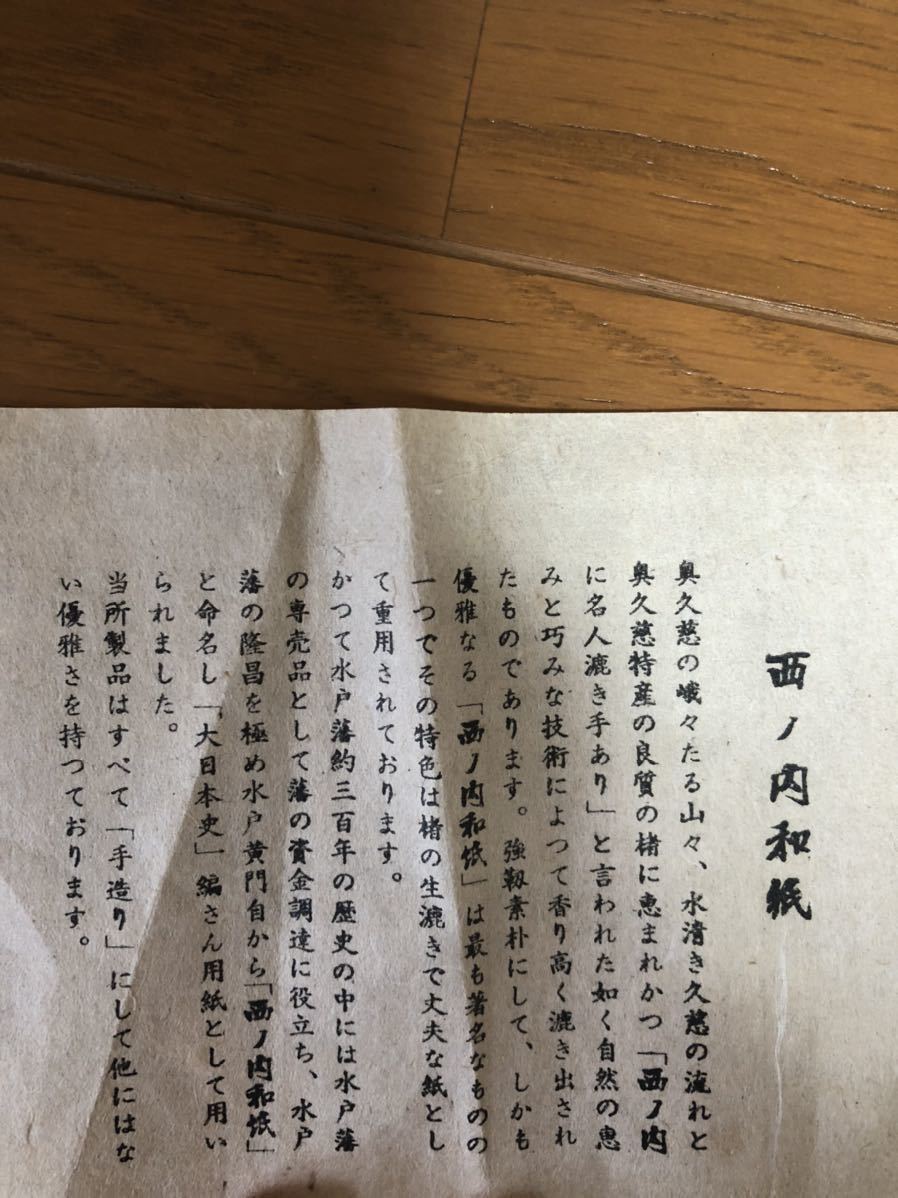 西ノ内和紙
奥久慈の峨々たる山々、水清き久慈の流れと
奥久慈特産の良質の楮に恵まれかつ「西ノ内
に名人漉き手あり」と言われた如く自然の恵
みと巧みな技術によつて香り高く漉き出され
たものであります。強靱素朴にして、しかも
優雅なる「西ノ内和紙」は最も著名なものの
一つでその特色は楮の生漉きで丈夫な紙とし
て重用されております。
かつて水戸藩約三百年の歴史の中には水戸藩
の専売品として藩の資金調達に役立ち、水戸
藩の隆昌を極め水戸黄門自から「西ノ内和紙」
と命名し「大日本史」編さん用紙として用い
られました。
当所製品はすべて「手造り」にして他にはな
い優雅さを持つております。